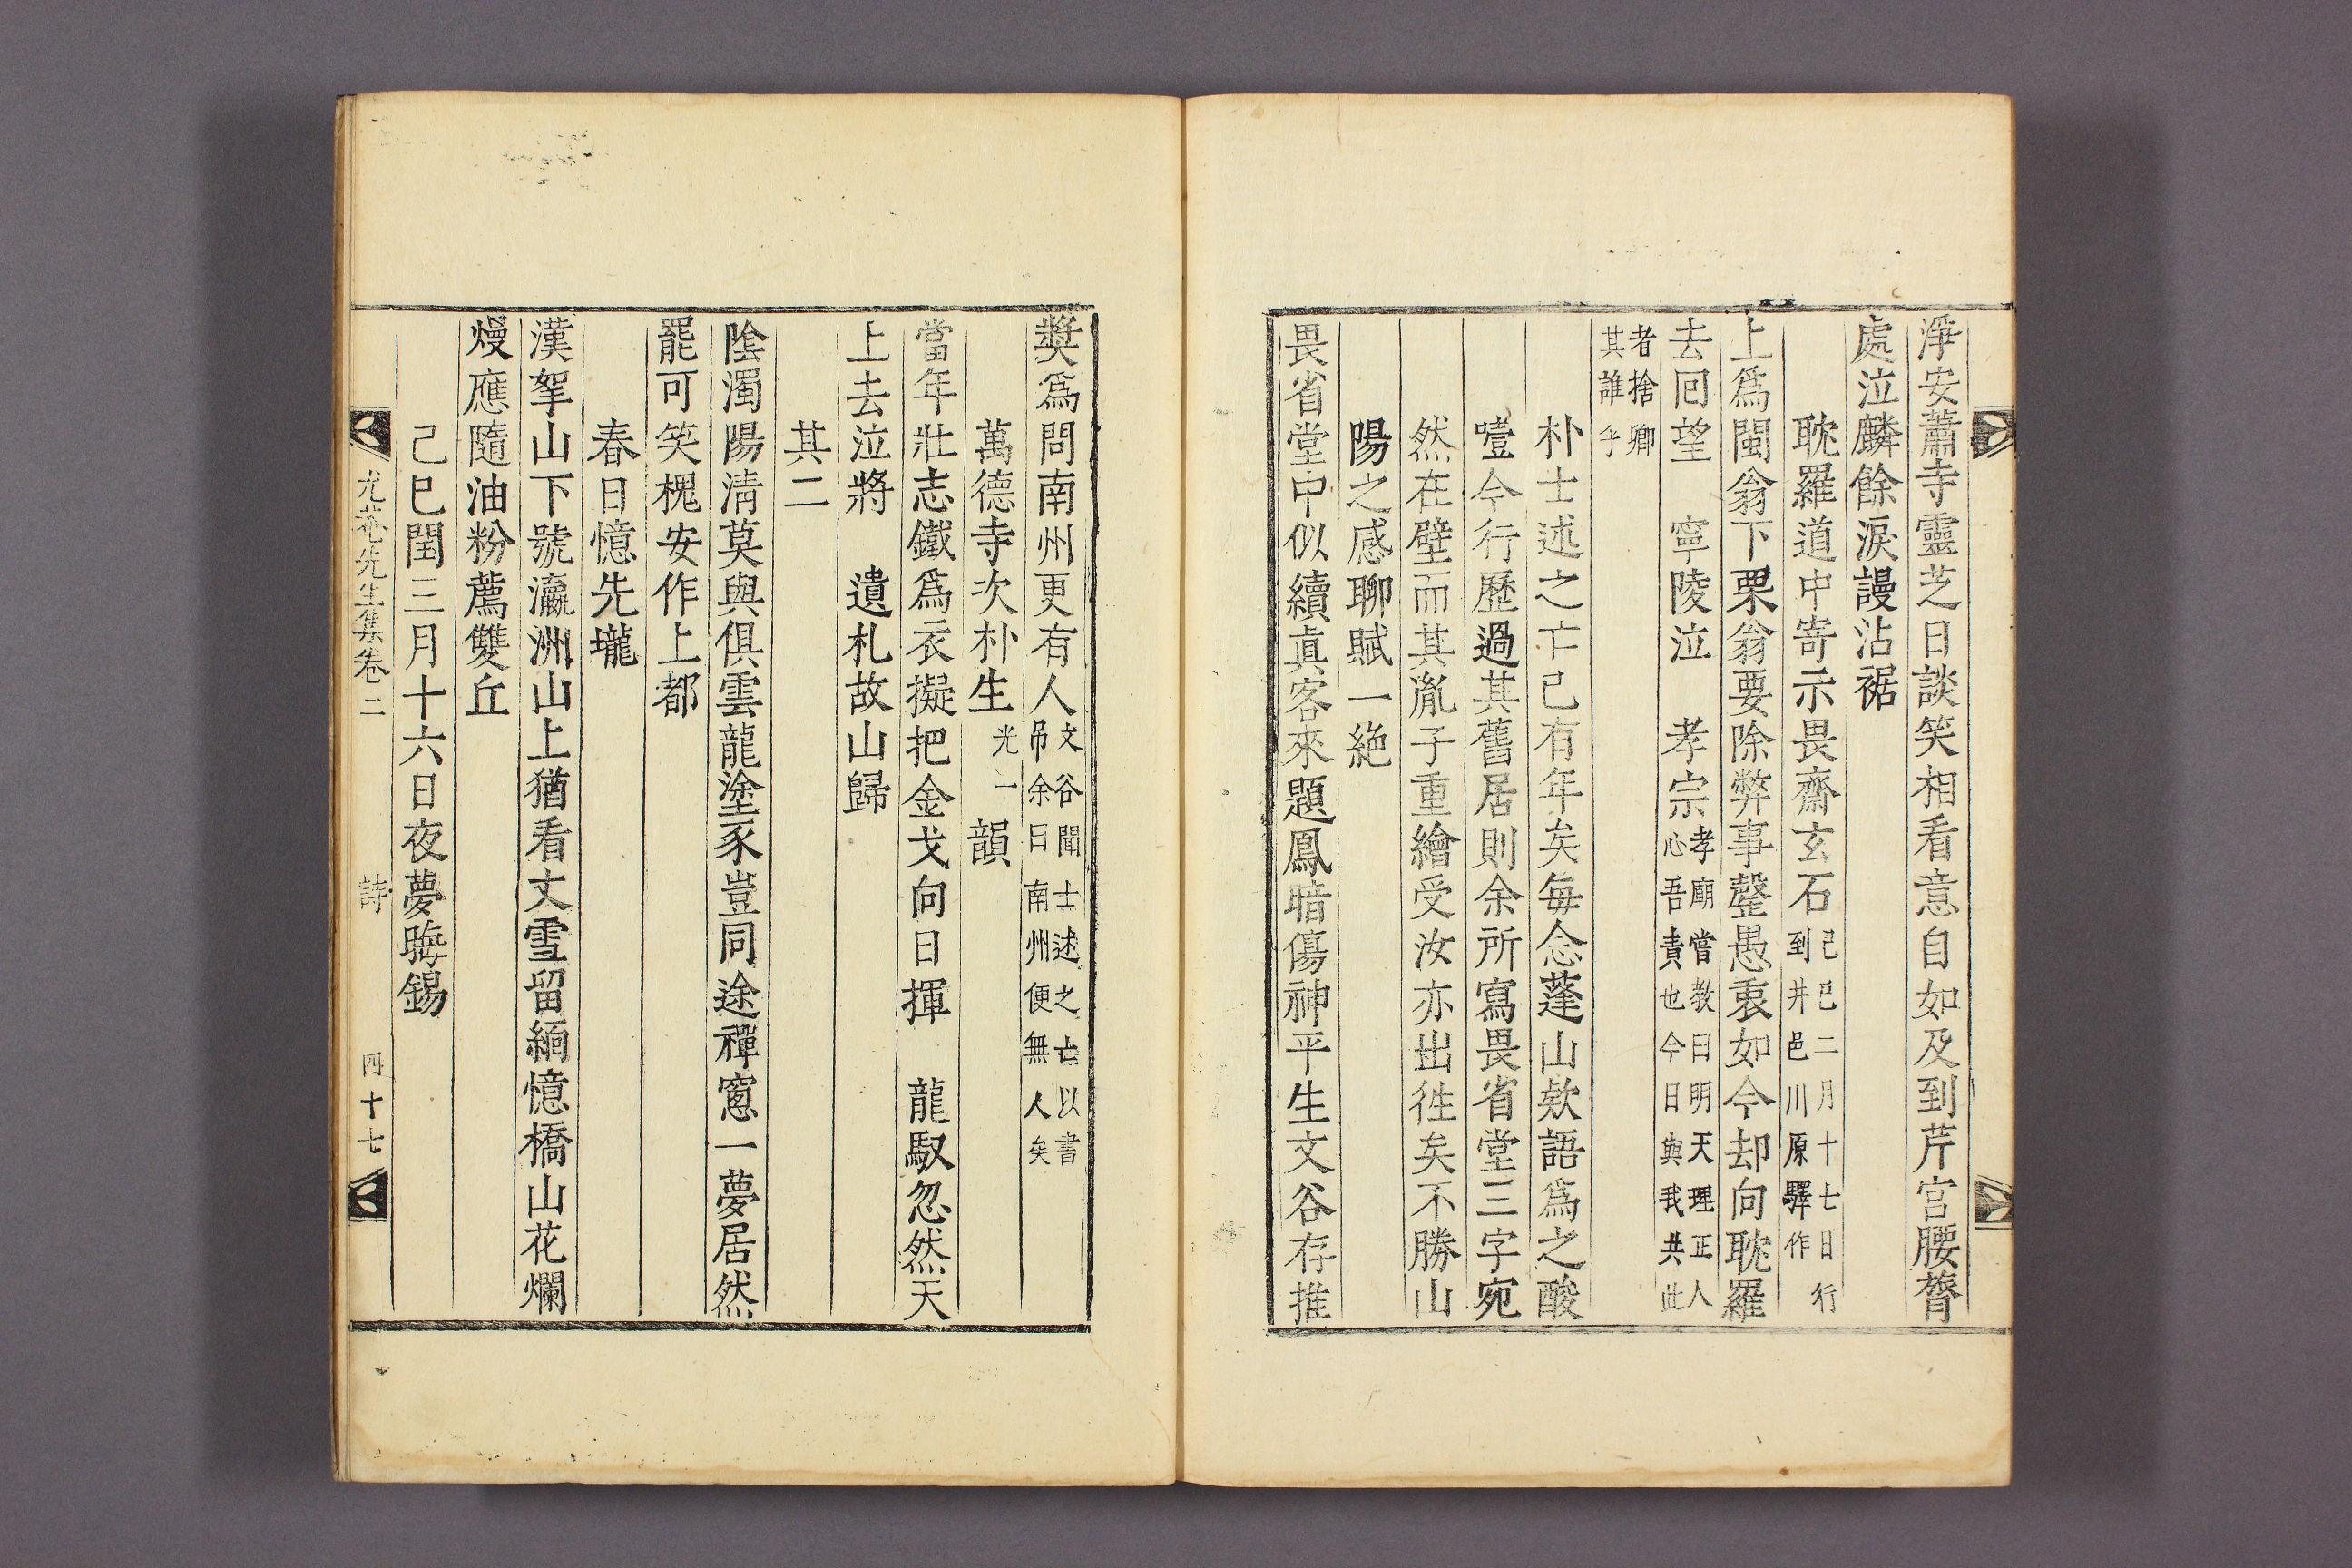 淨安蕭寺靈芝日談笑相看意自如及到芹宮腰膂
處泣麟餘淚謾沾裾
耽羅道中寄示畏齋玄石己巳二月十七日行到井邑川原驛作
上爲閩翁下栗翁要除弊事罄愚衷如今却向耽羅
去回望 寧陵泣 孝宗孝廟嘗教曰明天理正人心吾責也今日與我共此
者捨卿其誰乎
朴士述之亡已有年矣每念蓬山欸語爲之酸
噎今行歷過其舊居則余所寫畏省堂三字宛
然在壁而其胤子重繪受汝亦出徃矣不勝山
陽之感聊賦一絶
畏省堂中似續眞客來題鳳暗傷神平生文谷存推
奬爲問南州更有人文谷聞士述之亡以書吊余曰南州便無人矣
萬德寺次朴生光一韻
當年壯志鐵爲衣擬把金戈向日揮 龍馭忽然天
上去泣將 遺札故山歸
其二
陰濁陽淸莫與俱雲龍塗豕豈同途禪窻一夢居然
罷可笑槐安作上都
春日憶先壠
漢挐山下號瀛洲山上猶看丈雪留緬憶橋山花爛
熳應隨油粉薦雙丘
己巳閏三月十六日夜夢晦錫
尤菴先生集卷二 詩 四十七